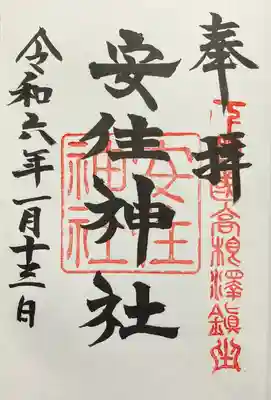 奉拝
下野國高根澤鎮坐
安住神社
安住神社
令和六年一月十三日